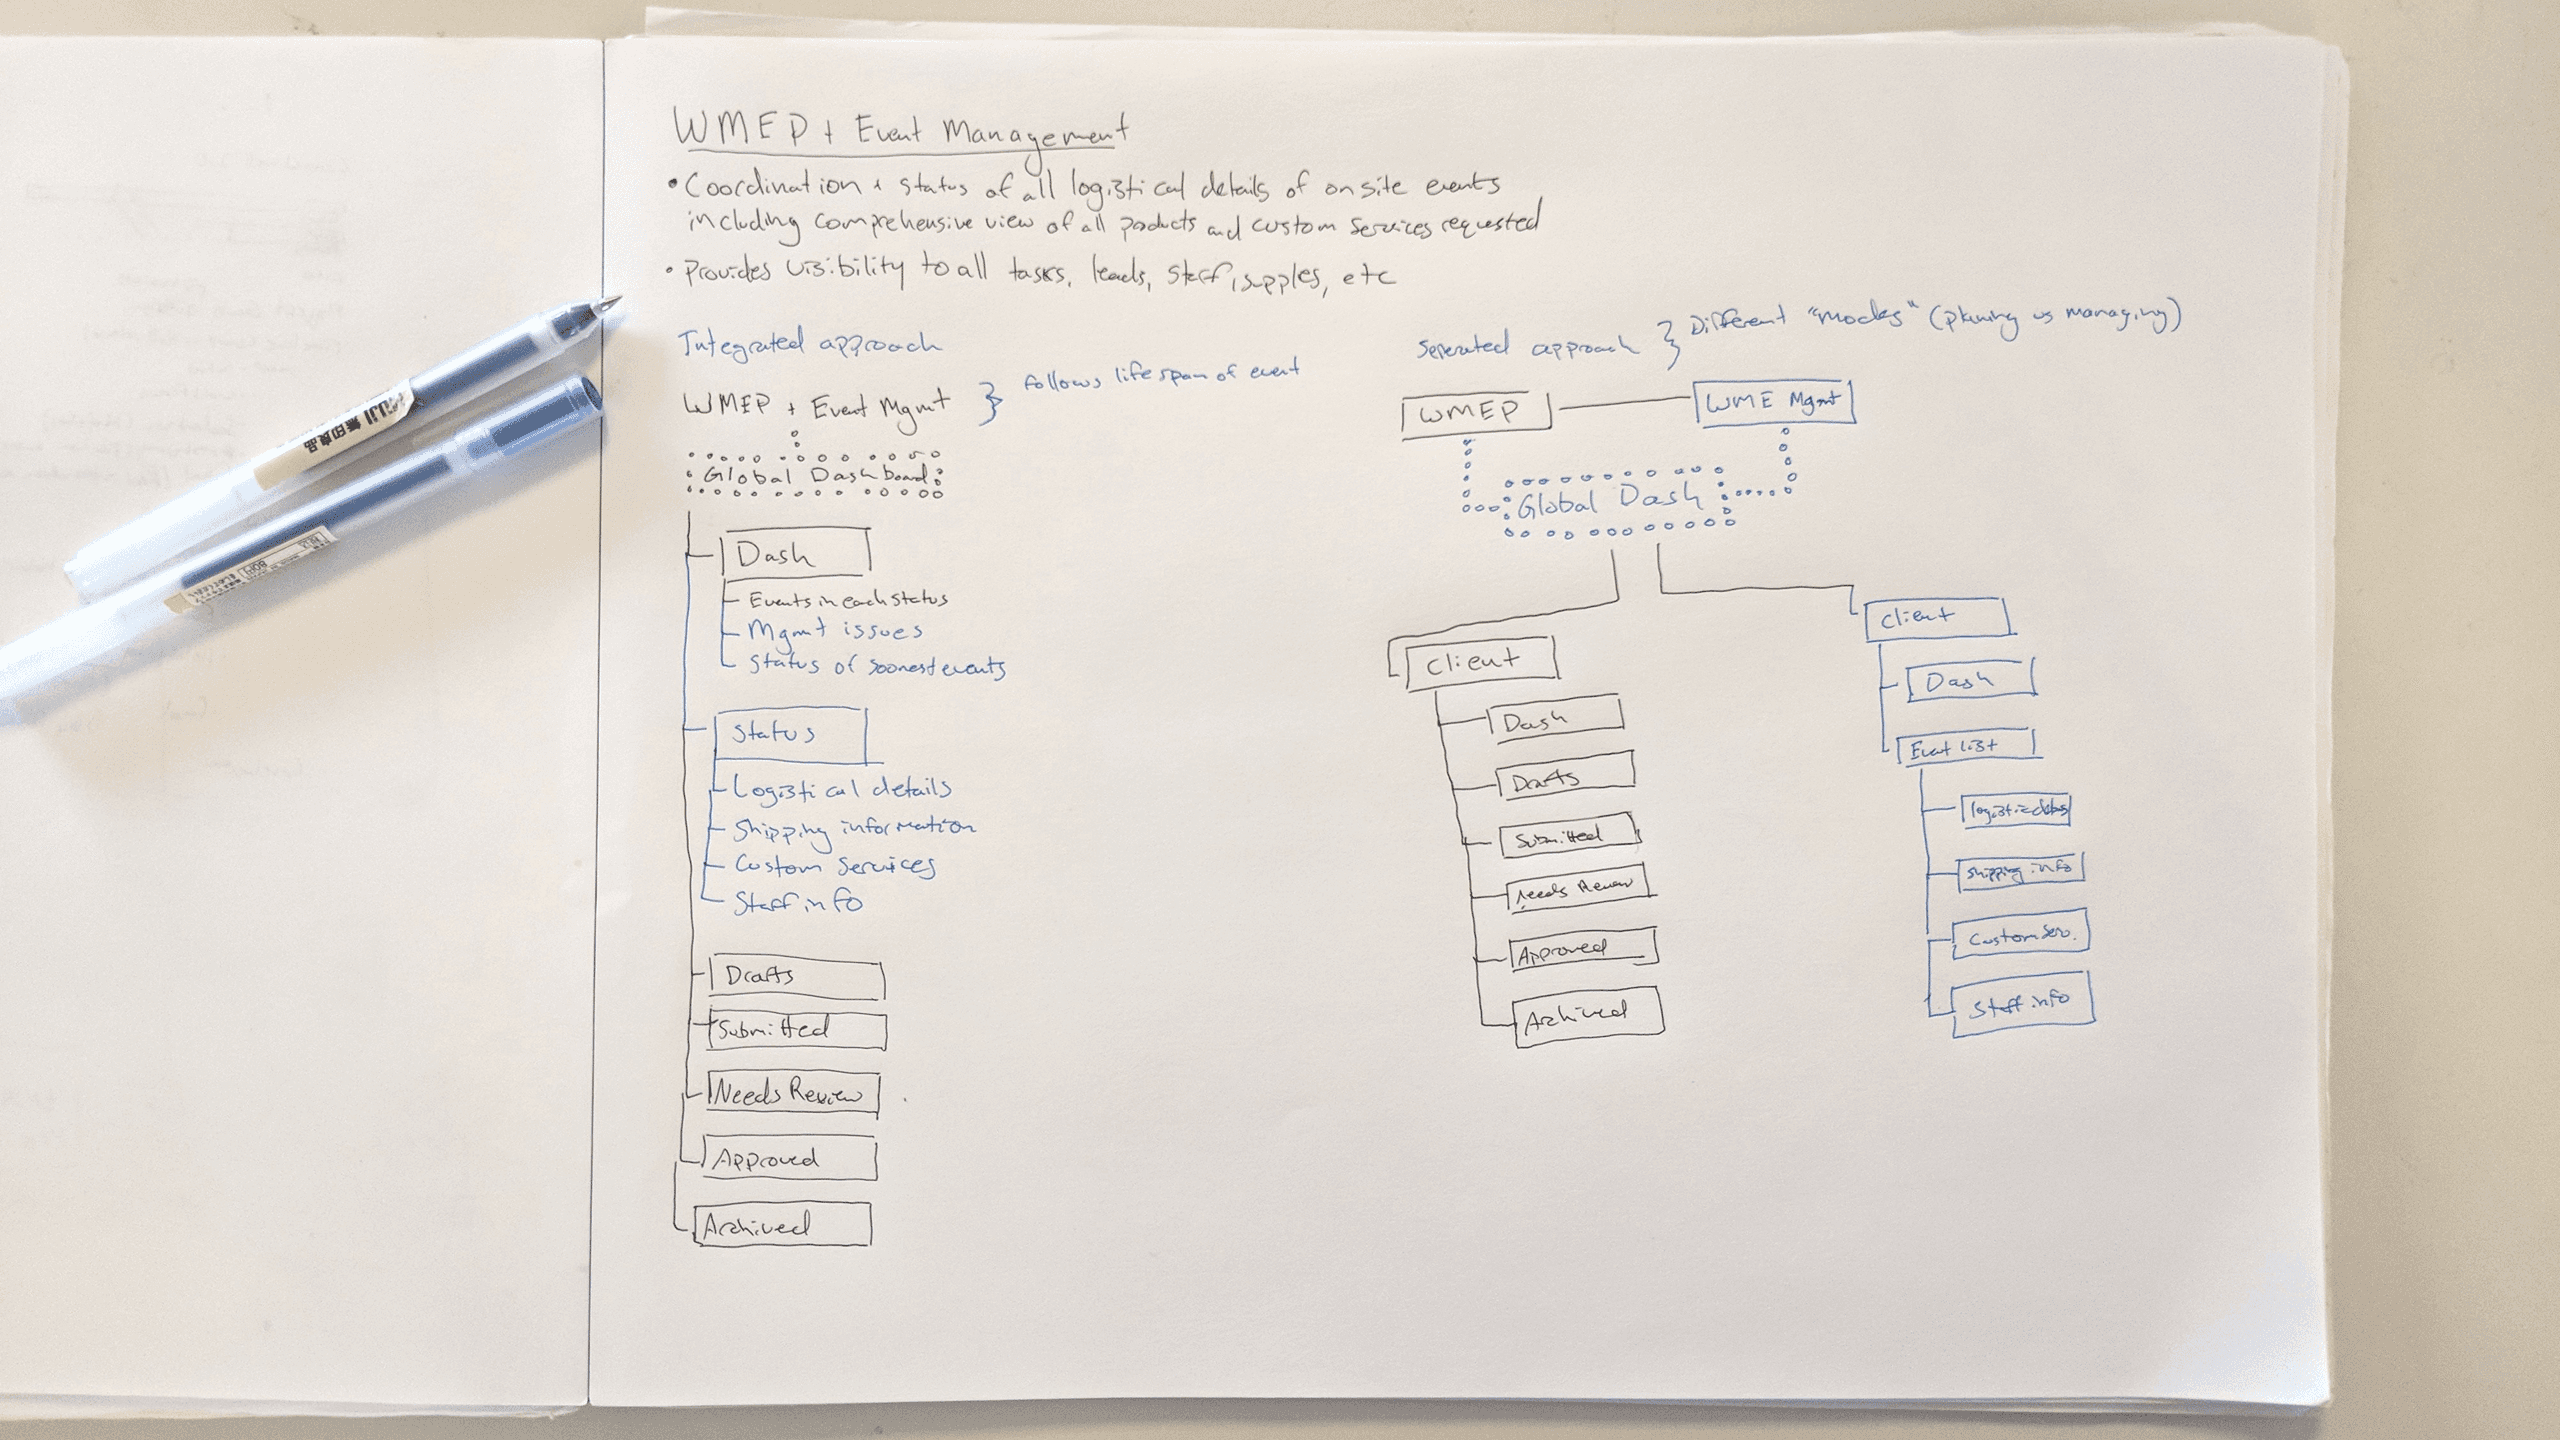 WMEP + Event Management
• Coordination + status of all logistical details of onsite events
including comprehensive view of all products and custom services requested
• Provides visibility to all tasks, leads, staff, supples, etc
Integrated approach
WMEP + Event Mgmt } follows lifespan of event
Global Dashboard
Dash
Events in each status
Mgmt issues
Status of soonest events
Status
Logistical details
Shipping information
Custom Services
Staff info
Drafts
Submitted
Needs Review
Approved
Archived
Seperated approach } Different "modes" (planning vs managing)
WMEP
WME Mgmt
Global Dash
Client
Dash
Drafts
Submitted
Needs Review
Approved
Archived
Client
Dash
Event list
Shipping info
Custom Serv.
Staff info
MUJI 無印良品